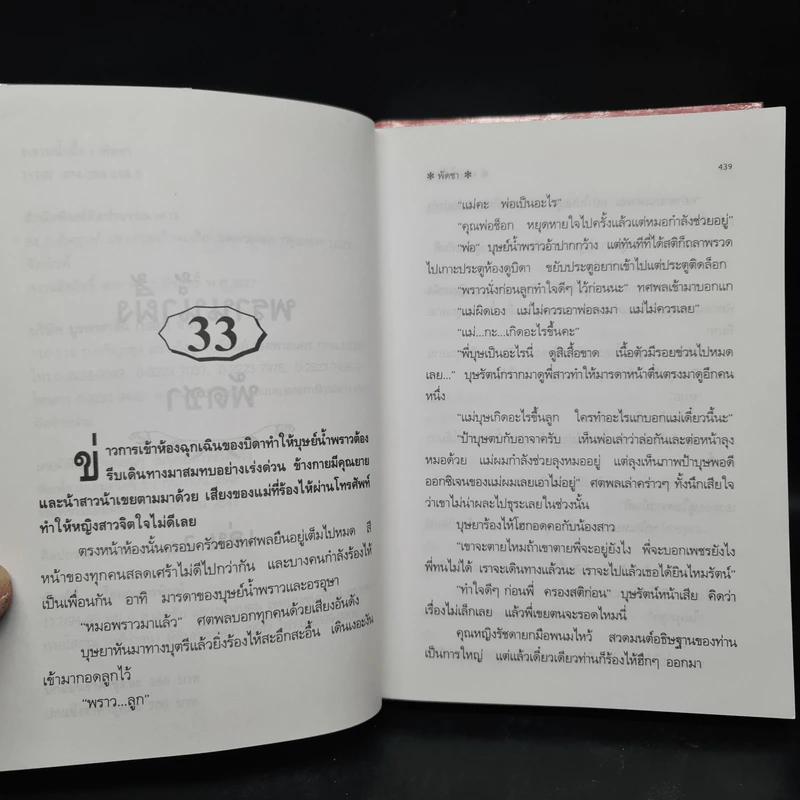 33
ข่าวการเข้าห้องฉุกเฉินของบิดาทำให้บุษย์น้ำพราวต้อง
รีบเดินทางมาสมทบอย่างเร่งด่วน ข้างกายมีคุณยาย
และน้าสาวน้าเขยตามมาด้วย เสียงของแม่ที่ร้องไห้ผ่านโทรศัพท์
ทำให้หญิงสาวจิตใจไม่ดีเลย
ตรงหน้าห้องนั้นครอบครัวของทศพลยืนอยู่เต็มไปหมด สี
หน้าของทุกคนสลดเศร้าไม่ดีไปกว่ากัน และบางคนกำลังร้องไห้
เป็นเพื่อนกัน อาทิ มารดาของบุษย์น้ำพราวและอรอุษา
“หมอพราวมาแล้ว” ศตพลบอกทุกคนด้วยเสียงอันดัง
บุษยาหันมาทางบุตรีแล้วยิ่งร้องไห้สะอึกสะอื้น เดินเงอะงัน
เข้ามากอดลูกไว้
“พราว...ลูก”
✻ พัดชา ✻
439
“แม่คะ พ่อเป็นอะไร”
“คุณพ่อช็อก หยุดหายใจไปครั้งแล้วแต่หมอกำลังช่วยอยู่”
“พ่อ” บุษย์น้ำพราวอ้าปากกว้าง แต่ทันทีที่ได้สติก็ถลาพรวด
ไปเกาะประตูห้องดูบิดา ขยับประตูอยากเข้าไปแต่ประตูติดล็อก
“พราวนั่งก่อนลูกทำใจดีๆ ไว้ก่อนนะ” ทศพลเข้ามาบอกแก
“แม่ผิดเอง แม่ไม่ควรเอาพ่อลงมา แม่ไม่ควรเลย”
“แม่...กะ...เกิดอะไรขึ้นคะ”
“พี่บุษเป็นอะไรนี่ ดูสิเสื้อขาด เนื้อตัวมีรอยข่วนไปหมด
เลย...” บุษรัตน์กรากมาดูพี่สาวทำให้มารดาหน้าตื่นตรงมาดูอีกคน
หนึ่ง
“แม่บุษเกิดอะไรขึ้นลูก ใครทำอะไรแกบอกแม่เดี๋ยวนี้นะ”
“ป้าบุษตบกับอาจาครับ เห็นพ่อเล่าว่าล่อกันและต่อหน้าลุง
หมอด้วย แม่ผมกำลังช่วยลุงหมออยู่ แต่ลุงเห็นภาพป้าบุษพอดี
ออกซิเจนของแม่ผมเลยเอาไม่อยู่” ศตพลเล่าคร่าวๆ ทั้งนึกเสียใจ
ว่าเขาไม่น่าผละไปธุระเลยในช่วงนั้น
บุษยาร้องไห้โฮกอดคอกับน้องสาว
“เขาจะตายไหมถ้าเขาตายพี่จะอยู่ยังไง พี่จะบอกเพชรยังไง
พี่ทนไม่ได้ เราจะเดินทางแล้วนะ เราจะไปแล้วเธอได้ยินไหมรัตน์”
“ทำใจดีๆ ก่อนพี่ ครองสติก่อน” บุษรัตน์หน้าเสีย คิดว่า
เรื่องไม่เล็กเลย แล้วพี่เขยตนจะรอดไหมนี่
คุณหญิงรัชดายกมือพนมไหว้ สวดมนต์อธิษฐานของท่าน
เป็นการใหญ่ แต่แล้วเดี๋ยวเดียวท่านก็ร้องไห้ฮึกๆ ออกมา